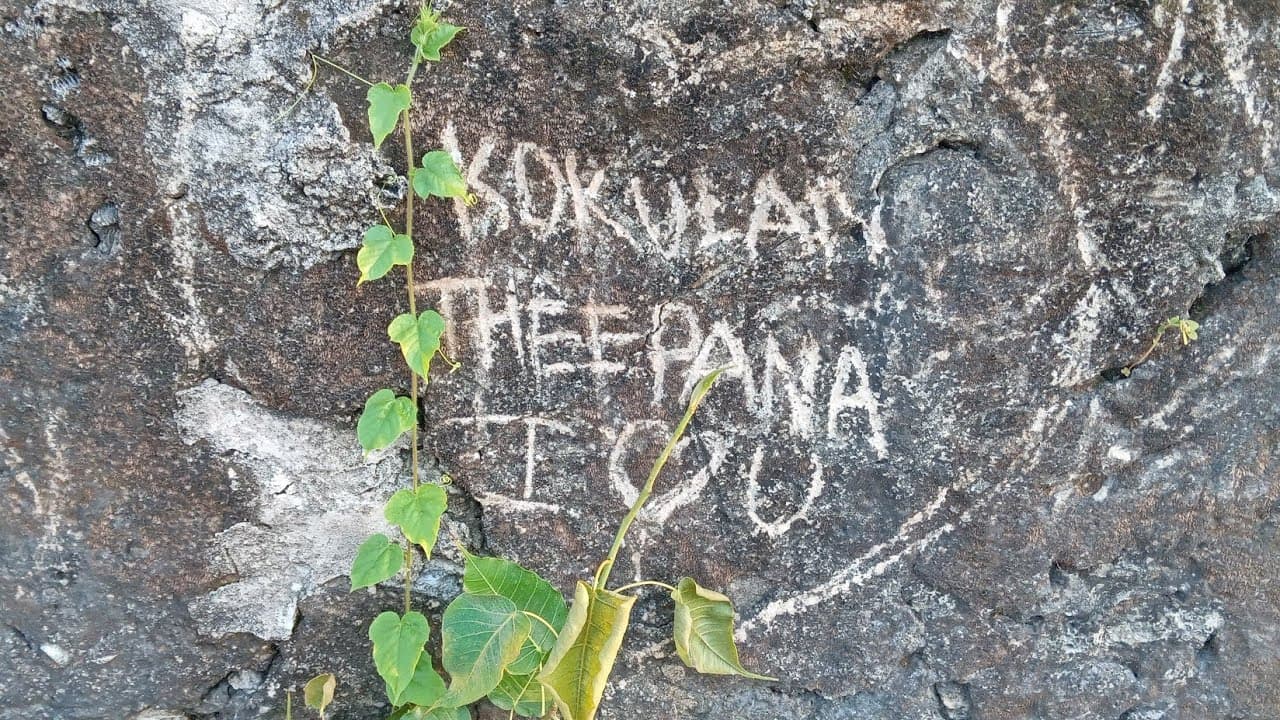 KOKULAN
THEEPANA
I ♡ U